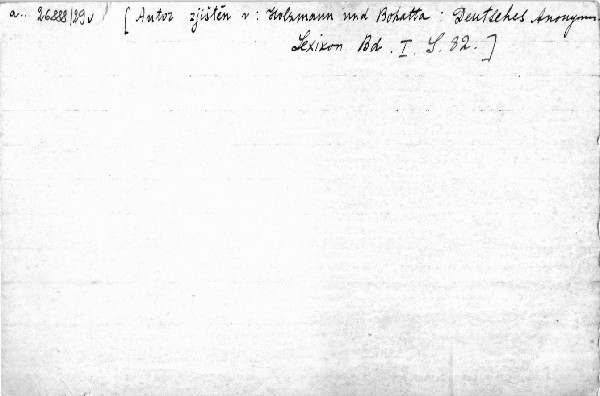 a... 26888/29v [Autor zjištěn v: Holzmann und Bohatta: Deutsches Anonymen
Lexikon Bd. I. S. 82.]